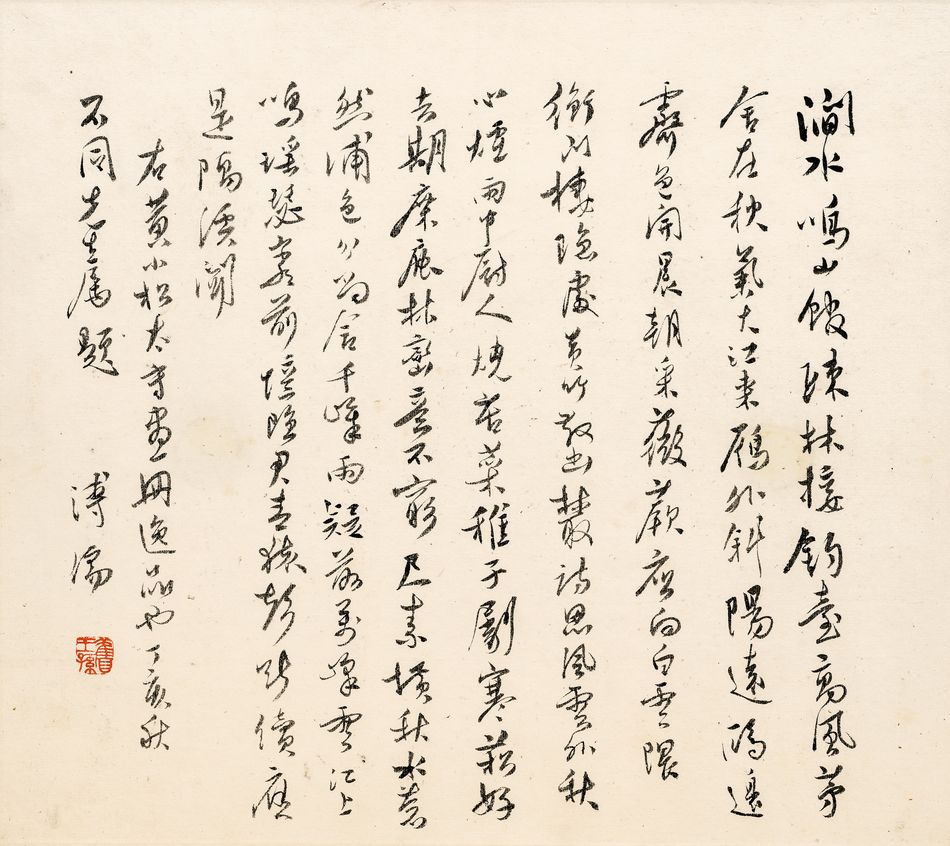 澗水鳴山磴疎林接釣臺高風茅
舍在秋氣大江來雁外斜陽遠鷗邊
霽色開晨朝采薇蕨應向白雲隈
衡門棲隱處黃竹散幽叢詩思風雲外秋
心煙雨中厨人燒苦菜稚子劚寒菘好
去期麋鹿林巒意不窮尺素橫秋水蒼
然浦色分鴻含千嶂雨疑落萬峰雲江上
鳴瑤瑟前蔭隱君青猿聲斷續應
是隔溪聞
右黃小松太守畫冊逸品也丁亥秋
不同先生屬題
溥儒
舊王孫